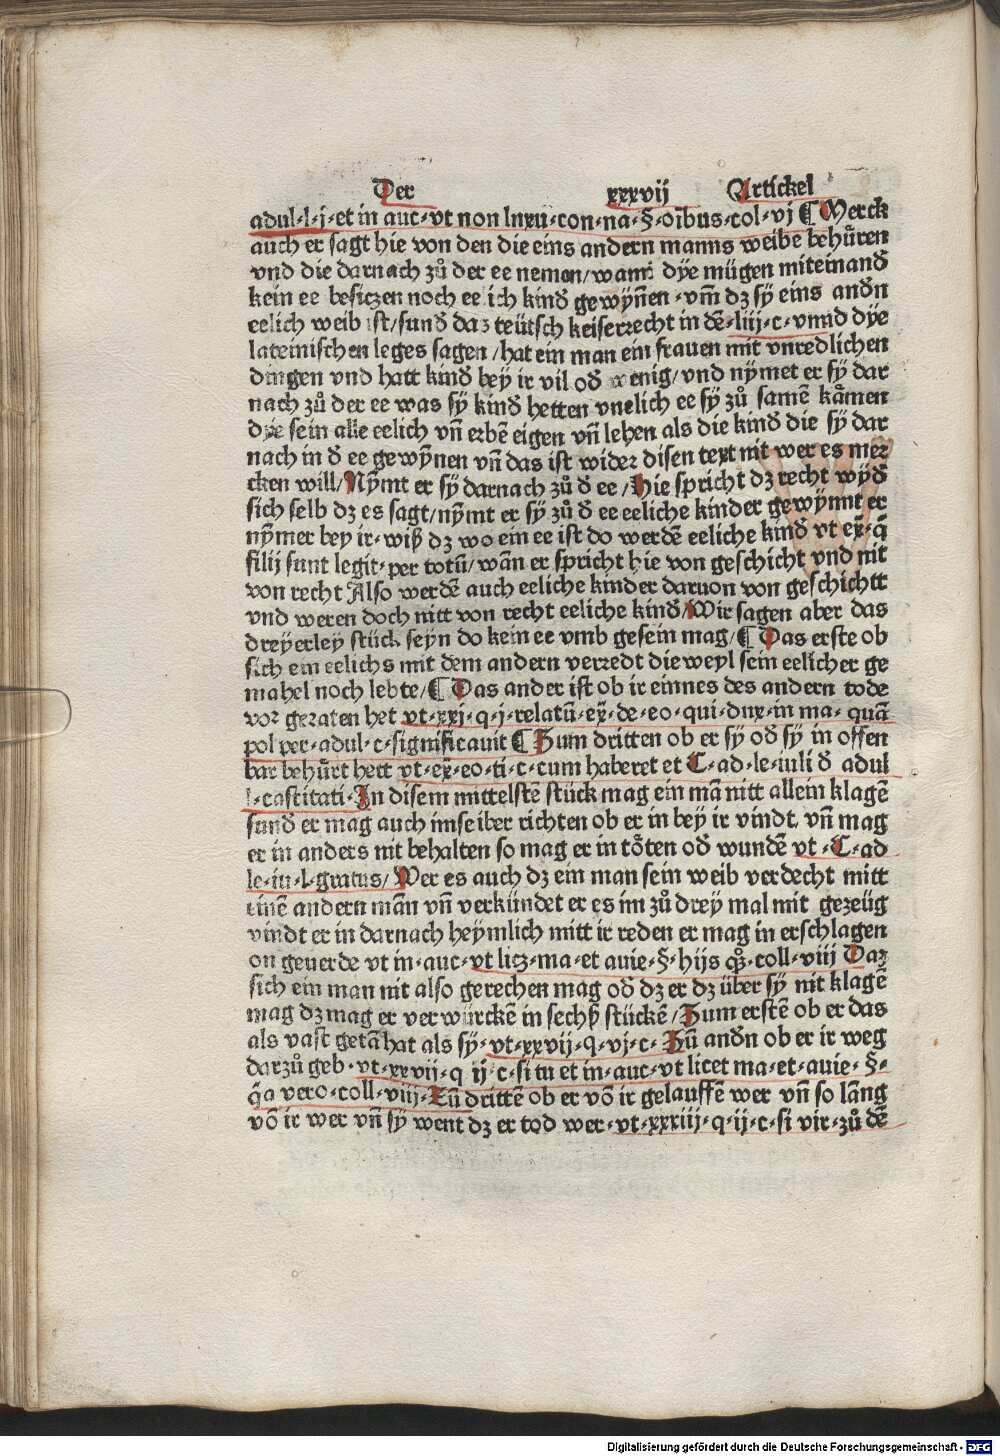 Der xxxvij Artickel
adul·l·j·et in auc·vt non lnxu·con·na·§·oībus·col·vj ¶ Merck
auch er sagt hie von den die eins andern manns weibe behůren
vnd die darnach zů der ee nemen/wann dye mügen miteinand
kein ee besiczen noch eelich kind gewyn̄en·vm̄ dz sy̋ eins andn̄
eelich weib ist/sund daz teütsch keiserrecht in dē·liij·c·vnnd dye
lateinischen leges sagen/hat ein man ein frauen mit vnredlichen
dingen vnd hatt kind bey ir vil od wenig/vnd nymet er sy̋ dar
nach zů der ee was sy̋ kind hetten vnelich ee sy̋ zů samē kāmen
dye sein alle eelich vn̄ erbē eigen vn̄ lehen als die kind die sy̋ dar
nach in d ee gewy̅nen vn̄ das ist wider disen text nit wer es mer
cken will/Ny̅mt er sy̋ darnach zů d ee/Hie spricht dz recht wyd
sich selb dz es sagt/ny̅mt er sy̋ zů d ee eeliche kinder gewynnt er
ny̅mer bey ir·wiß dz wo ein ee ist do werdē eeliche kind vt ex̄·q̄
filij sunt legit·per totū/wān er spricht hie von geschicht vnd nit
von recht Also werdē auch eeliche kinder daruon von geschichtt
vnd weren doch nitt von recht eeliche kind/Wir sagen aber das
dreyerley stück seyn do kein ee vmb gesein mag/¶ Das erste ob
sich ein eelichs mit dem andern verredt die weyl sein eelicher ge
mahel noch lebte/¶ Das ander ist ob ir einnes des andern tode
vor geraten het vt·xxj·q·j·relatū·ex̄·de·eo·qui·dux·in ma·quā
pol per·adul·c·significauit ¶ Zum dritten ob er sy̋ od sy̋ in offen
bar behůrt hett vt·ex̄·eo·ti·c·cum haberet et C·ad·le·iuli d adul
l·castitati·In disem mittelstē stück mag ein mā nitt allein klagē
sund er mag auch imselber richten ob er in bey ir vindt, vn̄ mag
er in anders nit behalten so mag er in tőten od wundē vt·C·ad
le·iu·l·gratus/Wer es auch dz ein man sein weib verdecht mitt
einē andern mān vn̄ verkündet er es im zů drey mal mit gezeüg
vindt er in darnach heymlich mitt ir reden er mag in erschlagen
on geuerde vt in·auc·vt licz·ma·et auie·§·hijs qz̊·coll·viij Daz
sich ein man nit also gerechen mag od dz er dz über sy̋ nit klagē
mag dz mag er verwürckē in sechß stückē/Zum erstē ob er das
als vast getā hat als sy̋·vt·xxvij·q·vj·c·Zū andn̄ ob er ir weg
darzů geb·vt·xxvij·q ij·c·si tu et in·auc·vt licet ma·et·auie·§·
q̄a vero·coll·viij·Zū drittē ob er vō ir gelauffē wer vn̄ so lāng
vō ir wer vn̄ sy̋ went dz er tod wer·vt·xxxiiij·q·ij·c·si vir·zů dē
Digitalisierung gefördert durch die Deutsche Forschungsgemeinschaft - DFG